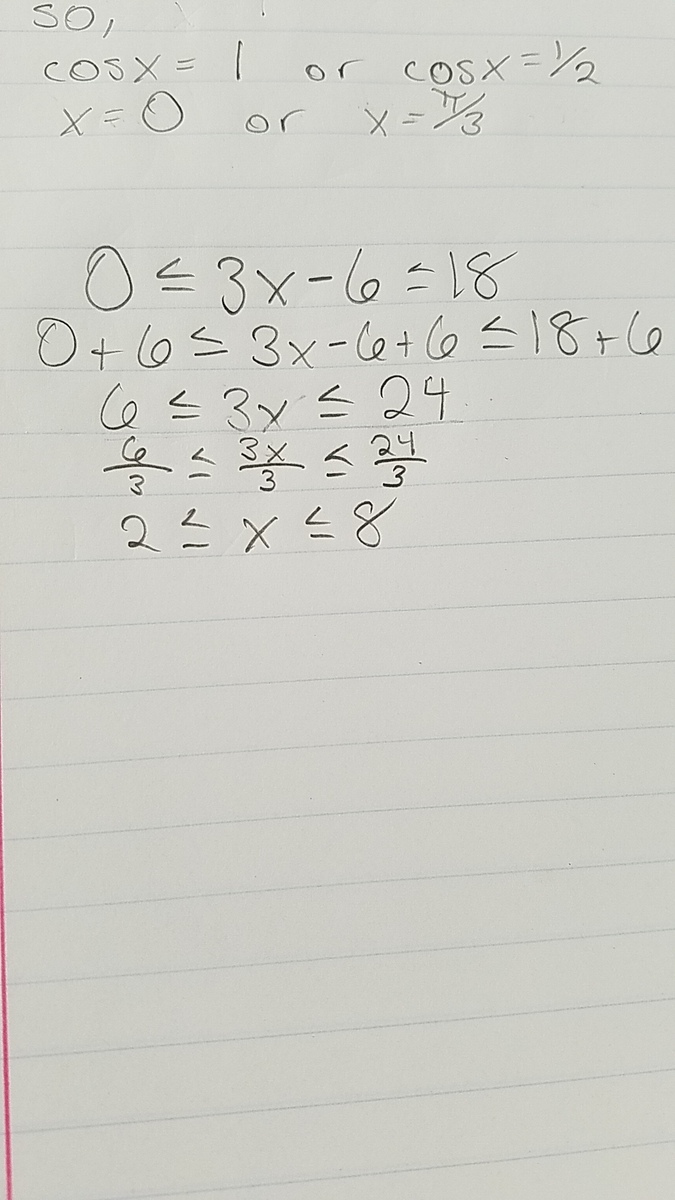 so,
cosx = 1 or cosx = 1/2
x = 0 or x = π/3
0 ≤ 3x - 6 ≤ 18
0 + 6 ≤ 3x - 6 + 6 ≤ 18 + 6
6 ≤ 3x ≤ 24
6/3 ≤ 3x/3 ≤ 24/3
2 ≤ x ≤ 8